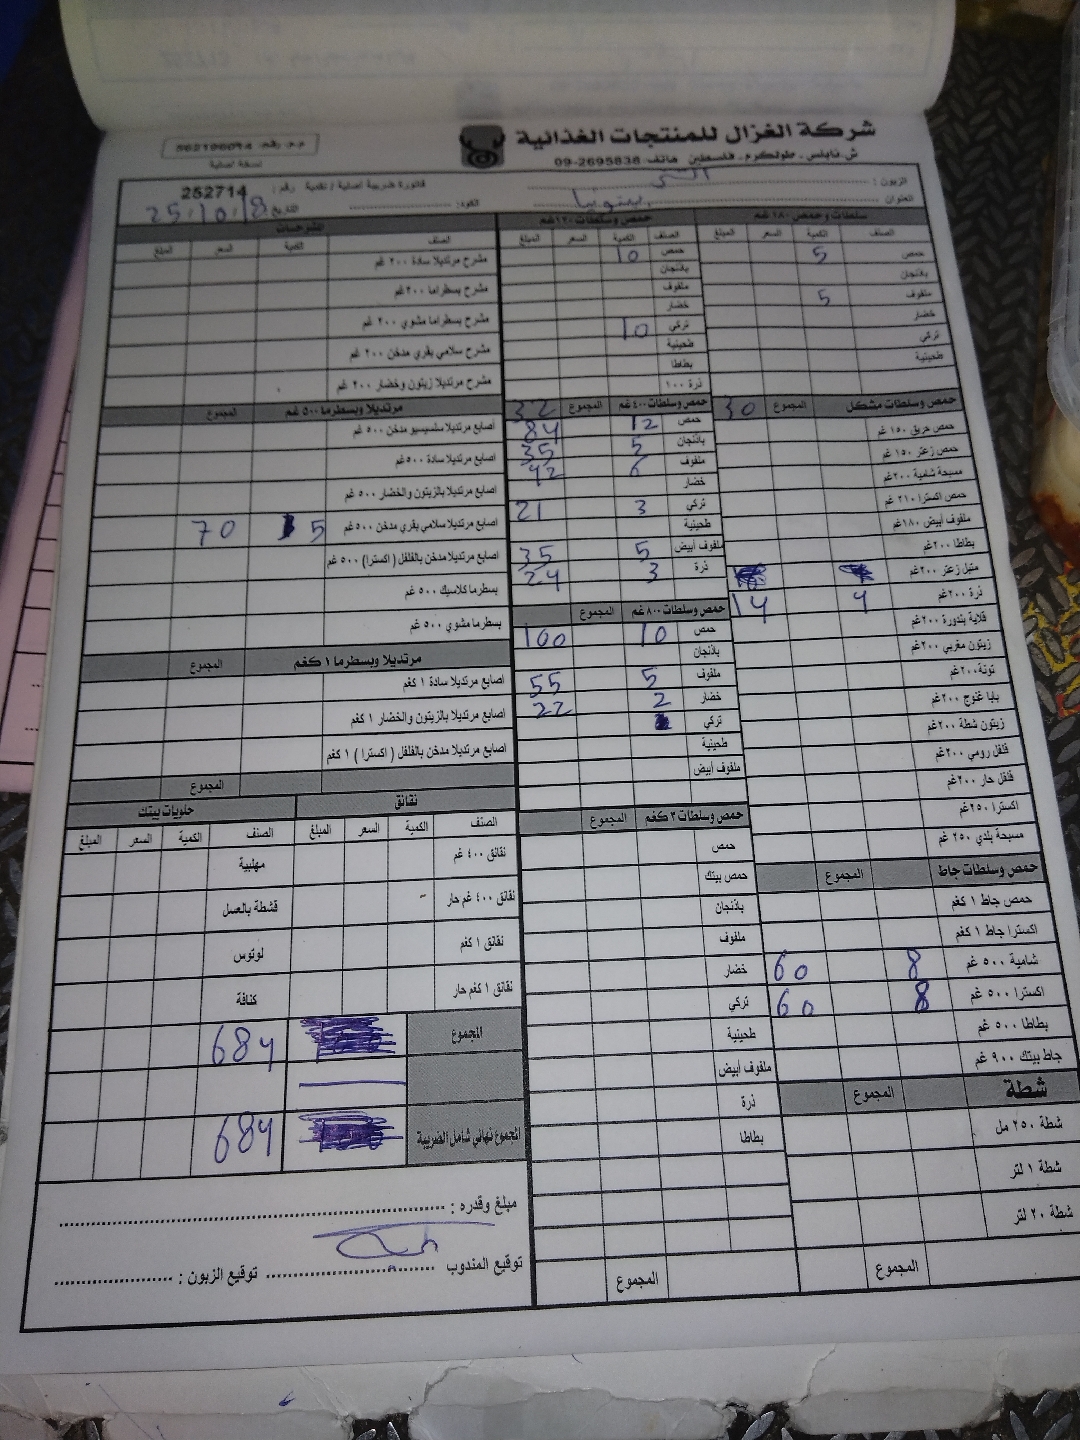 شركة الغزال للمنتجات الغذائية
ش.نابلس - طولكرم - فلسطين هاتف: 2695838-09
م.م. رقم: 562196094
نسخة اصلية
فاتورة ضريبية اصلية / نقدية رقم: 252714
الزبون:
العنوان:
الكود: التاريخ 25.10.18
سلطات وحمص ١٨٠ غم
الصنف الكمية السعر المبلغ
حمص 5
باذنجان
ملفوف 5
خضار
تركي
طحينية
حمص وسلطات مشكل المجموع 30
حمص حريق ١٥٠ غم
حمص زعتر ١٥٠ غم
مسبحة شامية ٢٠٠غم
حمص اكسترا ٢١٠ غم
ملفوف أبيض ١٨٠غم
بطاطا ٢٠٠غم
متبل زعتر ٢٠٠غم
ذرة ٢٠٠غم 4 14
قلاية بندورة ٢٠٠غم
زيتون مغربي ٢٠٠غم
تونة ٢٠٠غم
بابا غنوج ٢٠٠غم
زيتون شطة ٢٠٠غم
فلفل رومي ٢٠٠غم
فلفل حار ٢٠٠غم
اكسترا ٢٥٠غم
مسبحة بلدي ٢٥٠ غم
حمص وسلطات جاط المجموع
حمص جاط ١ كغم
اكسترا جاط ١ كغم
شامية ٥٠٠ غم 8 60
اكسترا ٥٠٠ غم 8 60
بطاطا ٥٠٠ غم
جاط بيتك ٩٠٠ غم
شطة المجموع
شطة ٢٥٠ مل
شطة ١ لتر
شطة ٢٠ لتر
المجموع
حمص وسلطات ١٢٠غم
الصنف الكمية السعر المبلغ
حمص 10
باذنجان
ملفوف
خضار
تركي 10
طحينية
بطاطا
ذرة ١٠٠
حمص وسلطات ٤٠٠ غم المجموع 32
حمص 12 84
باذنجان 5 35
ملفوف 6 42
خضار
تركي 3 21
طحينية
ملفوف أبيض 5 35
ذرة 3 24
حمص وسلطات ٨٠٠ غم المجموع
حمص 10 100
باذنجان
ملفوف 5 55
خضار 2 22
تركي
طحينية
ملفوف أبيض
حمص وسلطات ٣ كغم المجموع
حمص
حمص بيتك
باذنجان
ملفوف
خضار
تركي
طحينية
ملفوف أبيض
ذرة
بطاطا
المجموع
المشرحات
الصنف الكمية السعر المبلغ
مشرح مرتديلا سادة ٢٠٠ غم
مشرح بسطراما ٢٠٠غم
مشرح بسطراما مشوي ٢٠٠ غم
مشرح سلامي بقري مدخن ٢٠٠ غم
مشرح مرتديلا زيتون وخضار ٢٠٠ غم
مرتديلا وبسطرما ٥٠٠ غم المجموع
اصابع مرتديلا سلسيسيو مدخن ٥٠٠ غم
اصابع مرتديلا سادة ٥٠٠غم
اصابع مرتديلا بالزيتون والخضار ٥٠٠ غم
اصابع مرتديلا سلامي بقري مدخن ٥٠٠غم 5 70
اصابع مرتديلا مدخن بالفلفل ( اكسترا ) ٥٠٠ غم
بسطرما كلاسيك ٥٠٠ غم
بسطرما مشوي ٥٠٠ غم
مرتديلا وبسطرما ١ كغم المجموع
اصابع مرتديلا سادة ١ كغم
اصابع مرتديلا بالزيتون والخضار ١ كغم
اصابع مرتديلا مدخن بالفلفل ( اكسترا ) ١ كغم
المجموع
نقانق حلويات بيتك
الصنف الكمية السعر المبلغ الصنف الكمية السعر المبلغ
نقانق ٤٠٠ غم مهلبية
نقانق ٤٠٠ غم حار قشطة بالعسل
نقانق ١ كغم لوتوس
نقانق ١ كغم حار كنافة
المجموع 684
المجموع نهائي شامل الضريبة 684
مبلغ وقدره :
توقيع المندوب توقيع الزبون :